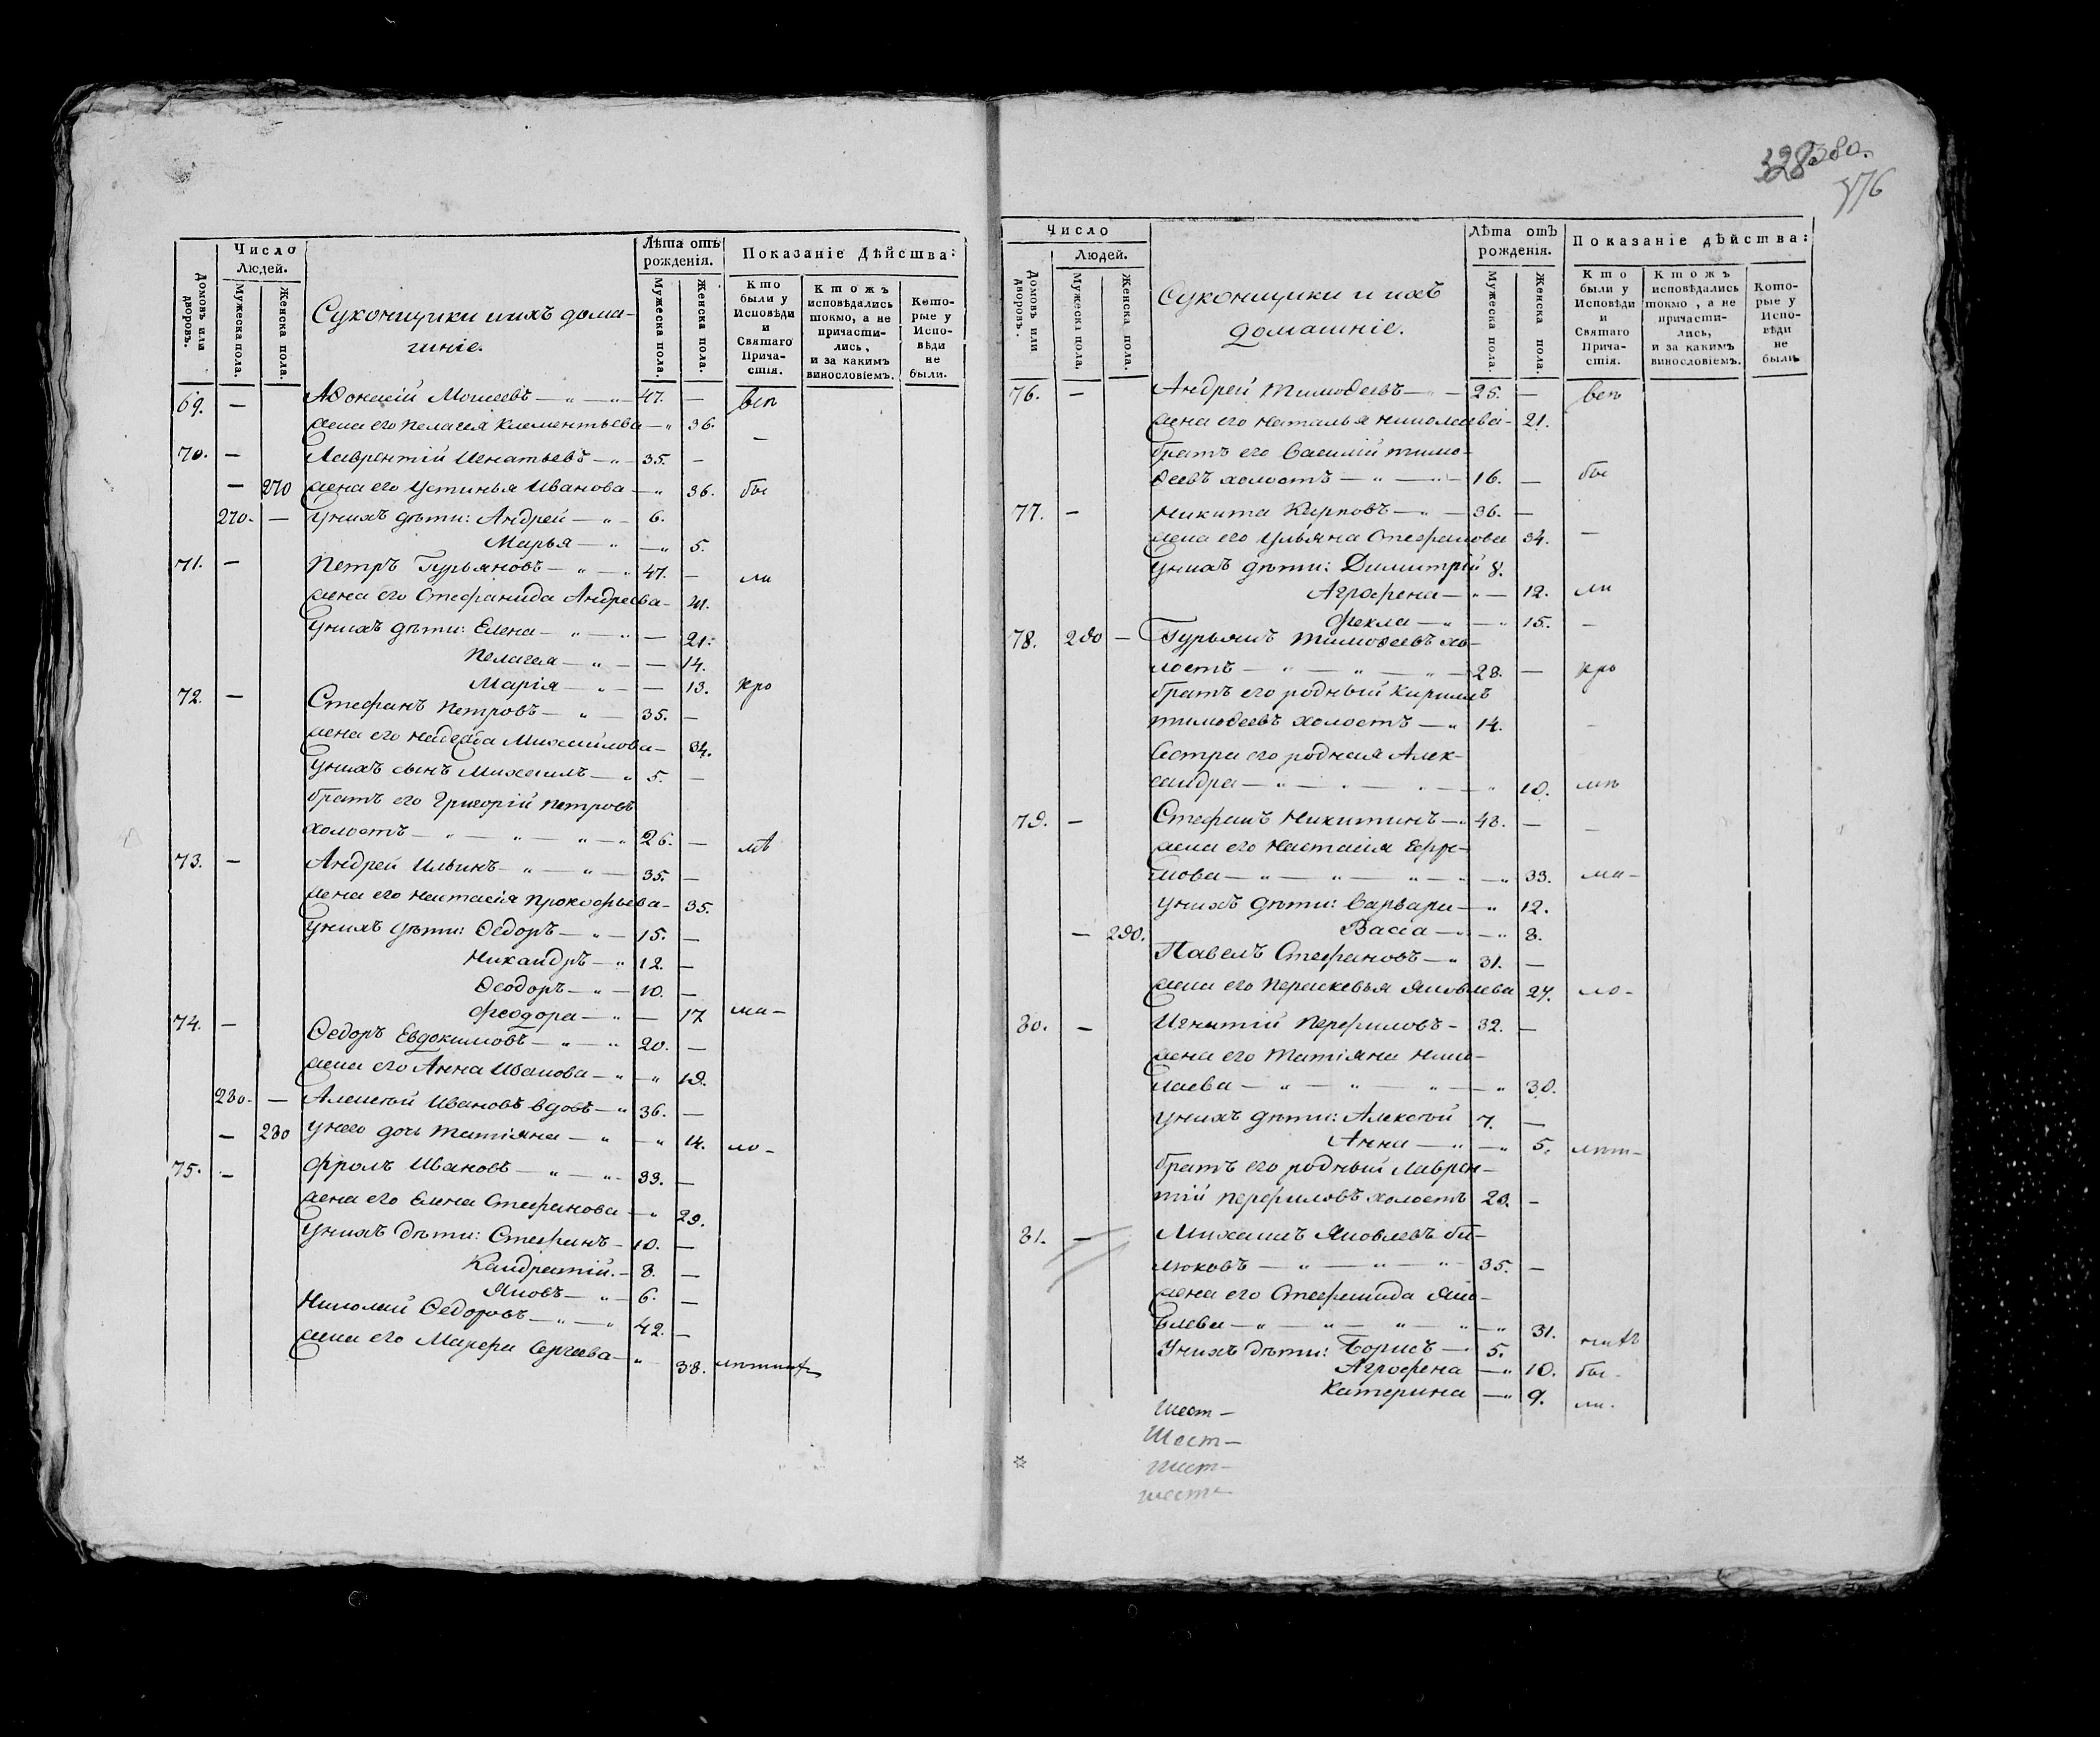 328 380.
376
Домовъ или дворовъ.
Число
Людей.
Мужеска пола.
Женска пола.
Суконщики иихъ дома-
шніе.
Лѣта отъ
рожденія.
Мужеска пола.
Женска пола.
Показаніе Дѣйства:
Кто
были у
Исповѣди
и
Святаго
Прича-
стія.
Ктожъ
исповѣдались
токмо, а не
причасти-
лись,
и за какимъ
винословіемъ.
Кото-
рые у
Испо-
вѣди
не
были.
69. — Аѳонасій Моисеевъ — 47. — всѣ
жена его Пелагея Климентьева — 36.
70. — Лаврентій Игнатьевъ — 35. —
— 270 жена его Устинья Иванова — 36. бы
270. — уних дѣти: Андрей — 6.
Марья — 5.
71. — Петръ Гурьяновъ — 47. — ли
жена его Стефанида Андреева — 41.
унихъ дѣти: Елена — 21.
Пелагея — 14.
Марія — 13. кро
72. — Стефанъ Петровъ — 35. —
жена его Надежда Михайлова — 34.
унихъ сынъ Михаилъ — 5. —
братъ его Григорій Петровъ
холостъ — 26. — мѣ
73. — Андрей Ильинъ — 35. —
жена его Настасія Прокофьева — 35.
унихъ дѣти: Ѳедоръ — 15. —
Никандръ — 12. —
Ѳеодоръ — 10. —
Феодора — 17 ма-
74. — Ѳедоръ Евдокимовъ — 20. —
жена его Анна Иванова — 19.
280. — Алексѣй Ивановъ вдовъ — 36. —
— 280 унего дочь Татіяна — 14. ло-
75. — Фролъ Ивановъ — 33. —
жена его Елена Стефанова — 29.
унихъ дѣти: Стефанъ — 10. —
Кандратій. — 8. —
Яковъ — 6. —
Николай Ѳедоровъ — 42. —
жена его Марѳа Сергеева — 38.
Число
Домовъ или дворовъ.
Людей.
Мужеска пола.
Женска пола.
Суконщики и ихъ
домашніе.
Лѣта отъ
рожденія.
Мужеска пола.
Женска пола.
Показаніе дѣйства:
Кто
были у
Исповѣди
и
Святаго
Прича-
стія.
Ктожъ
исповѣдались
токмо, а не
причасти-
лись,
и за какимъ
винословіемъ.
Кото-
рые у
Испо-
вѣди
не
были
76. — Андрей Тимоѳеевъ — 25. — всѣ
жена его Наталья Николаева — 21.
братъ его Василій Тимо-
ѳеевъ холостъ — 16. — бы
77. — Никита Карповъ — 36. —
жена его Ульяна Стефанова 34. —
унихъ дѣти: Димитрій 8.
Аграфена — 12. ли
Фекла — 15. —
78. 290 — Гурьянъ Тимоѳеевъ хо-
лостъ — 28. — кро
братъ его родный Кирилъ
Тимоѳеевъ холостъ — 14. —
Сестра его родная Алек-
сандра — 10. мѣ
79. — Стефанъ Никитинъ — 48. — —
жена его Настасія Ефре-
мова — 33. ма-
унихъ дѣти: Варвара — 12.
— 290. Васса — 8.
Павелъ Стефановъ — 31. —
жена его Перасковья Яковлева 27. ло-
80. — Игнатій Перфиловъ — 32. —
жена его Татіяна Нико-
лаева — 30.
унихъ дѣти: Алексѣй 7. —
Анна — 5. лѣт-
братъ его родный Лаврен-
тій Перфиловъ холостъ 20. —
81. — Михаилъ Яковлевъ би-
люковъ — 35. —
жена его Стефанида Яко-
влева — 31. нихъ
Унихъ дѣти: Борисъ — 5.
Аграфена — 10. бы.
Катерина — 9. ли.
Шест-
Шест-
шест-
шест-